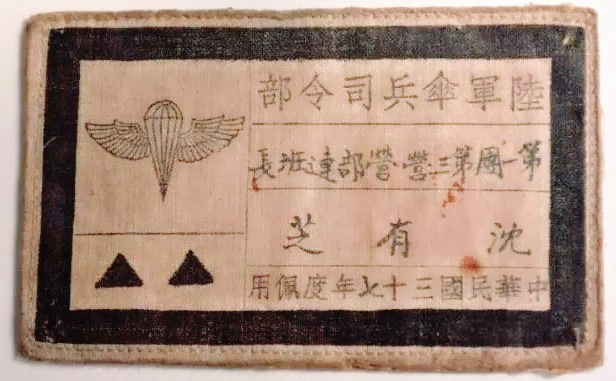 陸軍傘兵司令部
第一團第三營營部連班長
沈有芝
中華民國三十七年度佩用